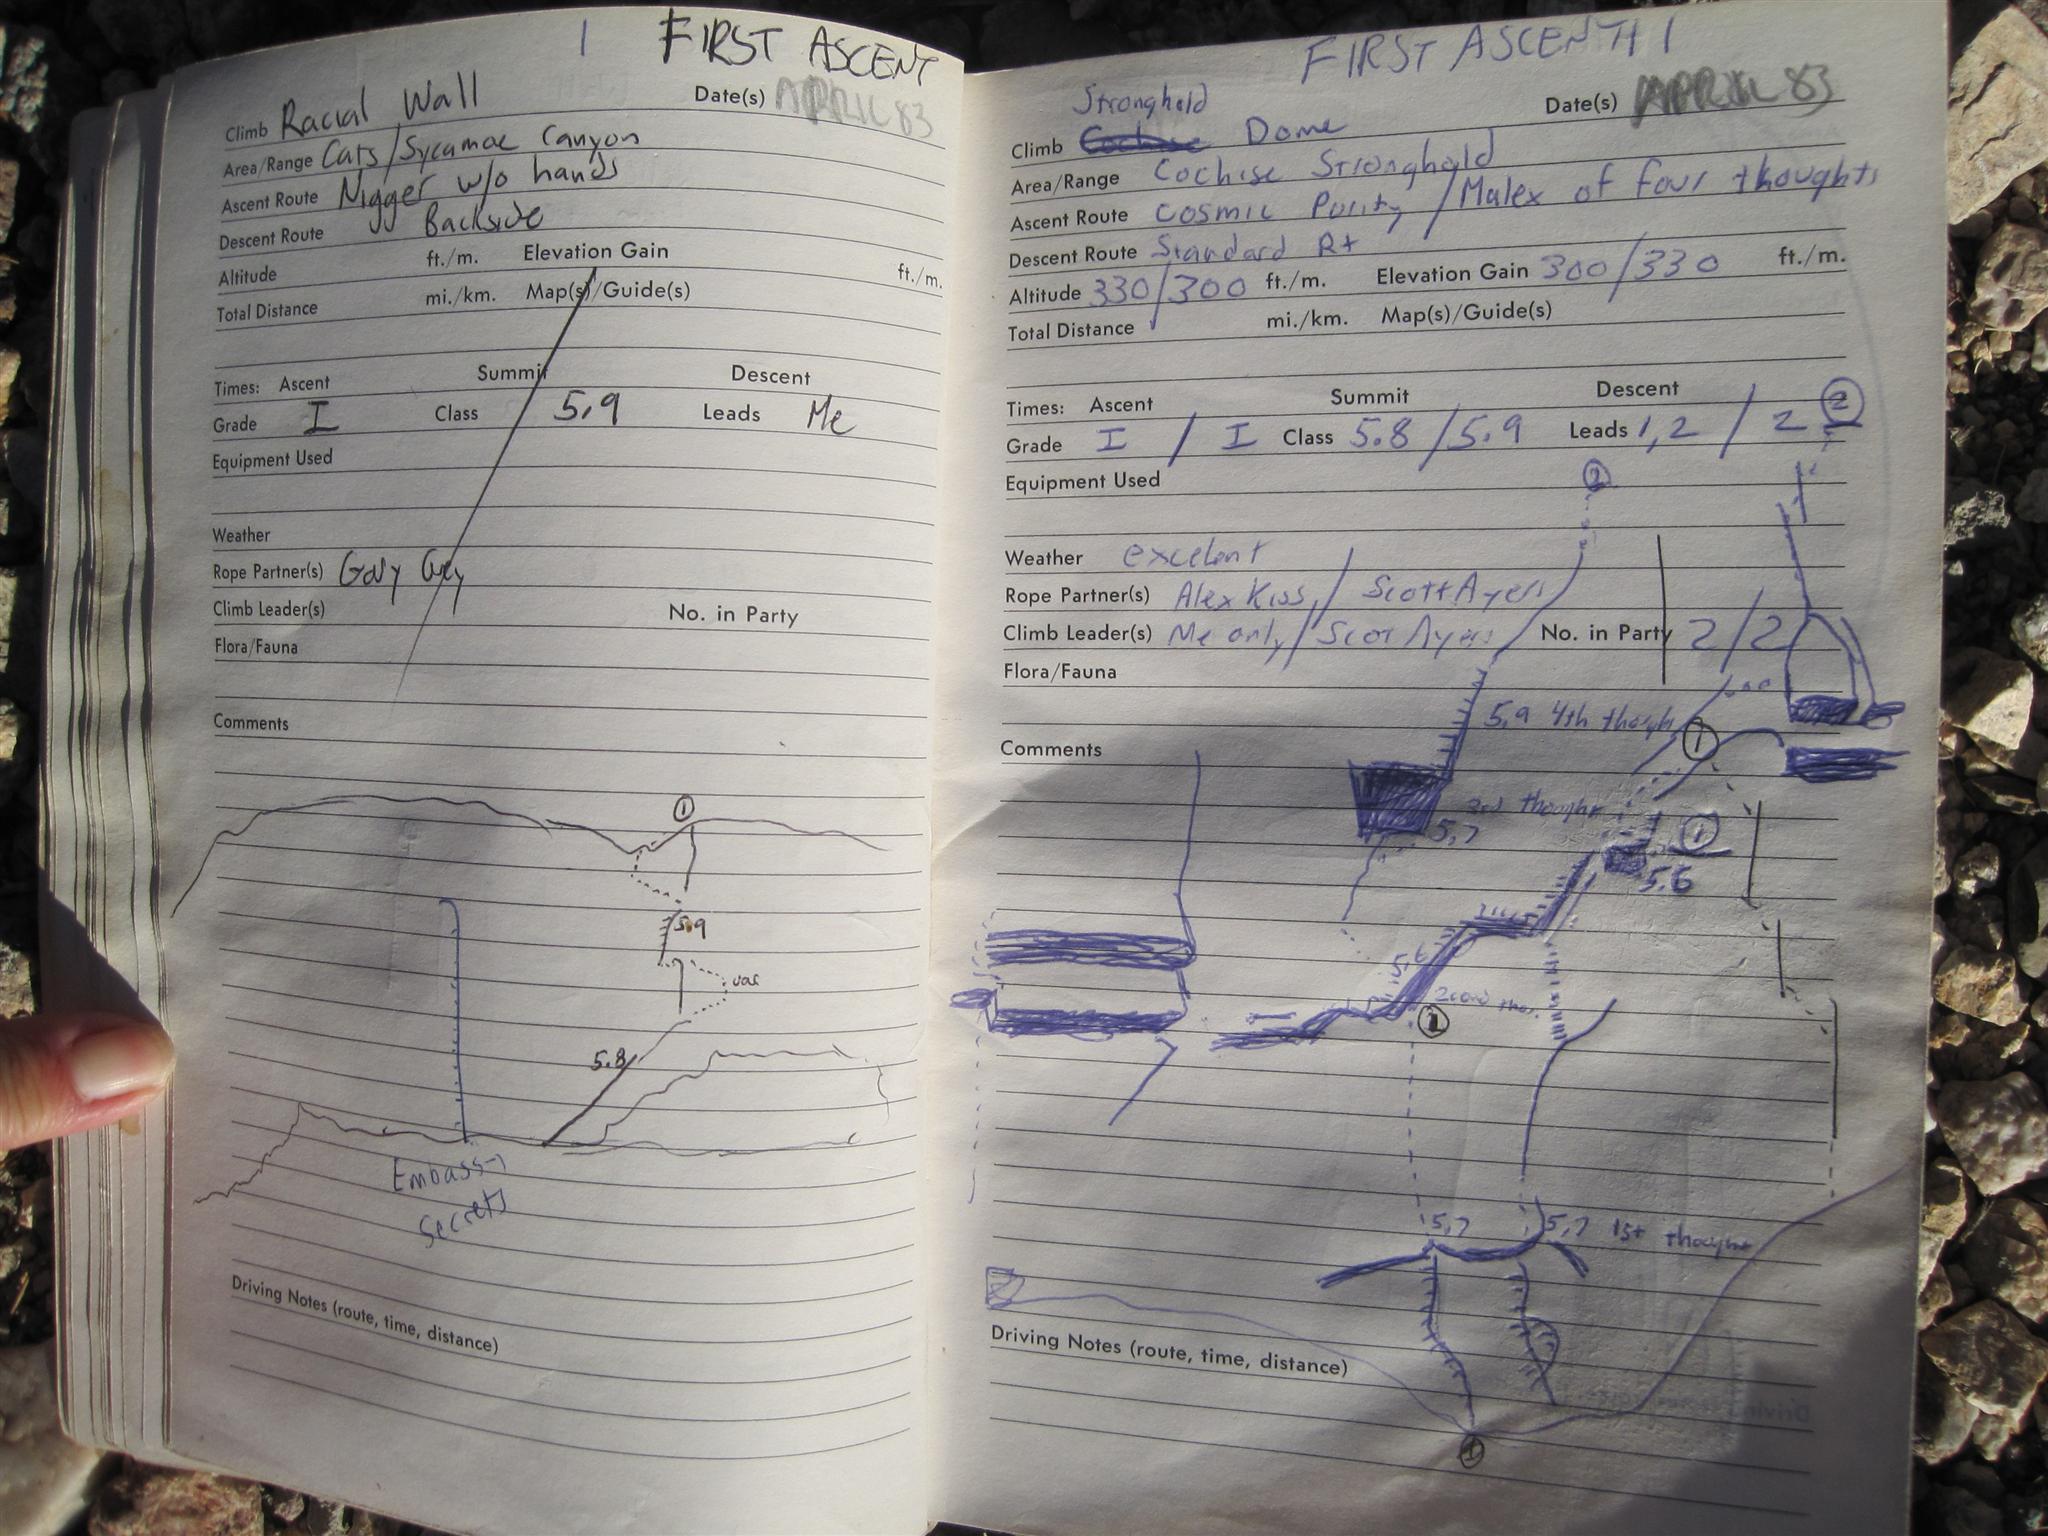 1 FIRST ASCENT
Climb Racial Wall Date(s) APRIL 83
Area/Range Cats/Sycamoe Canyon
Ascent Route Nigger w/o hands
Descent Route Backside
Altitude ft./m. Elevation Gain ft./m.
Total Distance mi./km. Map(s)/Guide(s)
Times: Ascent Summit Descent
Grade I Class 5.9 Leads Me
Equipment Used
Weather
Rope Partner(s) Gary
Climb Leader(s) No. in Party
Flora/Fauna
Comments
1
5.9
var
5.8
Embassy
Secrets
Driving Notes (route, time, distance)
FIRST ASCENT!
Stronghold
Climb Cochise Dome Date(s) APRIL 83
Area/Range Cochise Stronghold
Ascent Route Cosmic Purity / Malex of four thoughts
Descent Route Standard Rt
Altitude 330/300 ft./m. Elevation Gain 300/330 ft./m.
Total Distance mi./km. Map(s)/Guide(s)
Times: Ascent Summit Descent
Grade I / I Class 5.8 / 5.9 Leads 1,2 / 2 2
Equipment Used
2
Weather excelent
Rope Partner(s) Alex Kiss / Scott Ayers
Climb Leader(s) Me only / Scot Ayers No. in Party 2/2
Flora/Fauna
5.9 4th thought
1
Comments
3rd thought
5.7
1
5.6
5.6
1
5.7 5.7 1st thought
Driving Notes (route, time, distance)
1